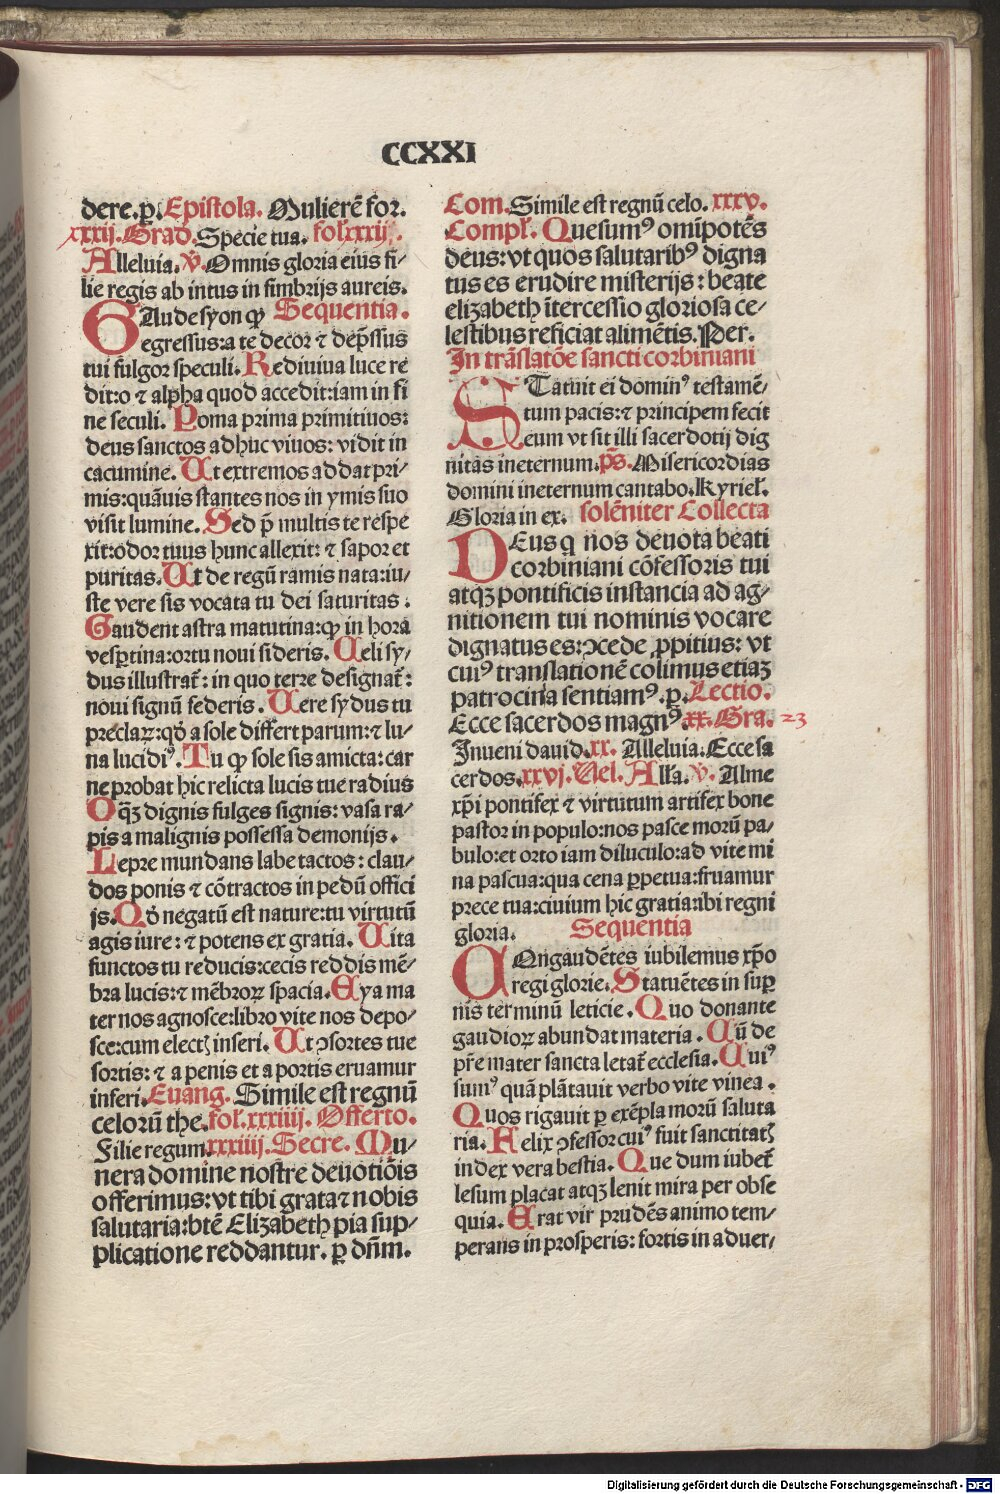 CCXXI
dere.p̲. Epistola. Mulierē for.
xxxij. Grad. Specie tua. fol̓.xxxij.
Alleluia. v̓. Omnis gloria eius fi⸗
lie regis ab intus in fimbrijs aureis.
GAude syon qͥ Sequentia.
egressus: a te decor ⁊ dep̄ssus
tui fulgor speculi. Rediuiua luce re
dit: o ⁊ alpha quod accedit: iam in fi
ne seculi. Poma prima primitiuos:
deus sanctos adhuc viuos: vidit in
cacumine. Ut extremos addat pri⸗
mis: quāuis stantes nos in ymis suo
visit lumine. Sed p̄ multis te respe
xit: odor tuus hunc allexit: ⁊ sapor et
puritas. Ut de regū ramis nata: iu⸗
ste vere sis vocata tu dei saturitas:
Gaudent astra matutina: qͥ in hora
vesp̲tina: ortu noui sideris. Celi sy⸗
dus illustrat̄: in quo terre designat̄:
noui signū federis. Uere sydus tu
p̄claꝝ: qd̓ a sole differt parum: ⁊ lu⸗
na lucidiꝰ. Tu qͥ sole sis amicta: car
ne probat hic relicta lucis tue radius
Oqꝫ dignis fulges signis: vasa ra⸗
pis a malignis possessa demonijs.
Lepre mundans labe tactos: clau⸗
dos ponis ⁊ cōtractos in pedū offici
js. Qd̓ negatū est nature: tu virtutū
agis iure: ⁊ potens ex gratia. Uita
functos tu reducis: cecis reddis mē⸗
bra lucis: ⁊ mēbroꝝ spacia. Eya ma
ter nos agnosce: libro vite nos depo⸗
sce: cum electꝭ inseri. Ut ꝯsortes tue
sortis: ⁊ a penis et a portis eruamur
inferi. Euang. Simile est regnū
celorū the. fol̓.xxxiiij. Offerto.
Filie regum. xxxiiij. Secre. Mu⸗
nera domine nostre deuotiōis
offerimus: vt tibi grata ⁊ nobis
salutaria: btē Elizabeth pia sup⸗
plicatione reddantur. p̲ dn̄m.
Com. Simile est regnū celo. xxxv.
Compl̓. Quesumꝰ om̄ipotēs
deus: vt quos salutaribꝰ digna
tus es erudire misterijs: beate
elizabeth īntercessio gloriosa ce⸗
lestibus reficiat alimētis. Per.
In trāslatōe sancti corbiniani
STatuit ei dominꝰ testamē⸗
tum pacis: ⁊ principem fecit
eum vt sit illi sacerdotij dig
nitas ineternum. ps̄. Misericordias
domini ineternum cantabo. Kyriel̓.
Gloria in ex. solēniter Collecta
DEus q̄ nos deuota beati
corbiniani cōfessoris tui
atqꝫ pontificis instancia ad ag⸗
nitionem tui nominis vocare
dignatus es: ꝯcede ꝓpitius: vt
cuiꝰ translationē colimus etiaꝫ
patrocinia sentiamꝰ. p̲. Lectio.
Ecce sacerdos magnꝰ. xx. Gra. 23
Inueni dauid. xx. Alleluia: Ecce sa
cerdos. xxvj. Uel. Alla̓. v̓. Alme
xp̄i pontifex ⁊ virtutum artifex bone
pastor in populo: nos pasce morū pa⸗
bulo: et orto iam diluculo: ad vite mi
na pascua: qua cena p̲petua: fruamur
prece tua: ciuium hic gratia: ibi regni
gloria. Sequentia
COngaudētes iubilemus xp̄o
regi glorie. Statuētes in sup̲
nis̄ terminū leticie. Quo donante
gaudioꝝ abundat materia. Cū de
pr̄e mater sancta letat̄ ecclesia. Cuiꝰ
sumꝰ quā plātauit verbo vite vinea.
Quos rigauit p̲ exēpla morū saluta
ria. Felix ꝯfessor cuiꝰ fuit sanctitatꝭ
index vera bestia. Que dum iubet̄
lesum placat atqꝫ lenit mira per obse
quia. Erat vir prudēs animo tem⸗
perans in prosperis: fortis in aduer⸗
Digitalisierung gefördert durch die Deutsche Forschungsgemeinschaft - DFG